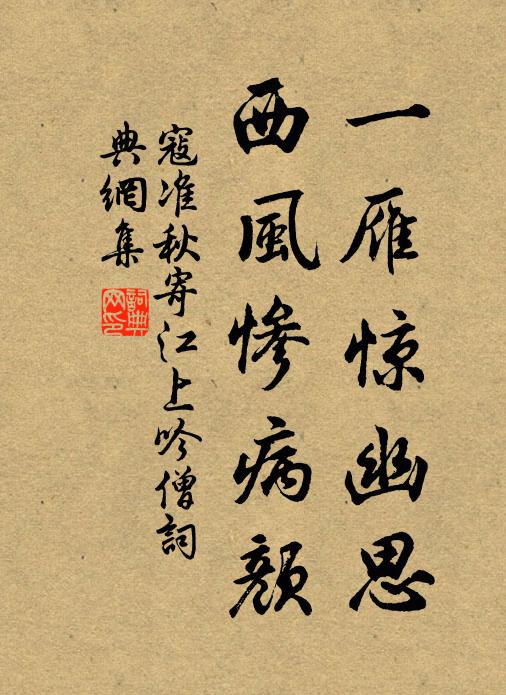 一雁惊幽思
西風惨病颜
寇准秋寄江上吟僧詞
典網集
詞典網印